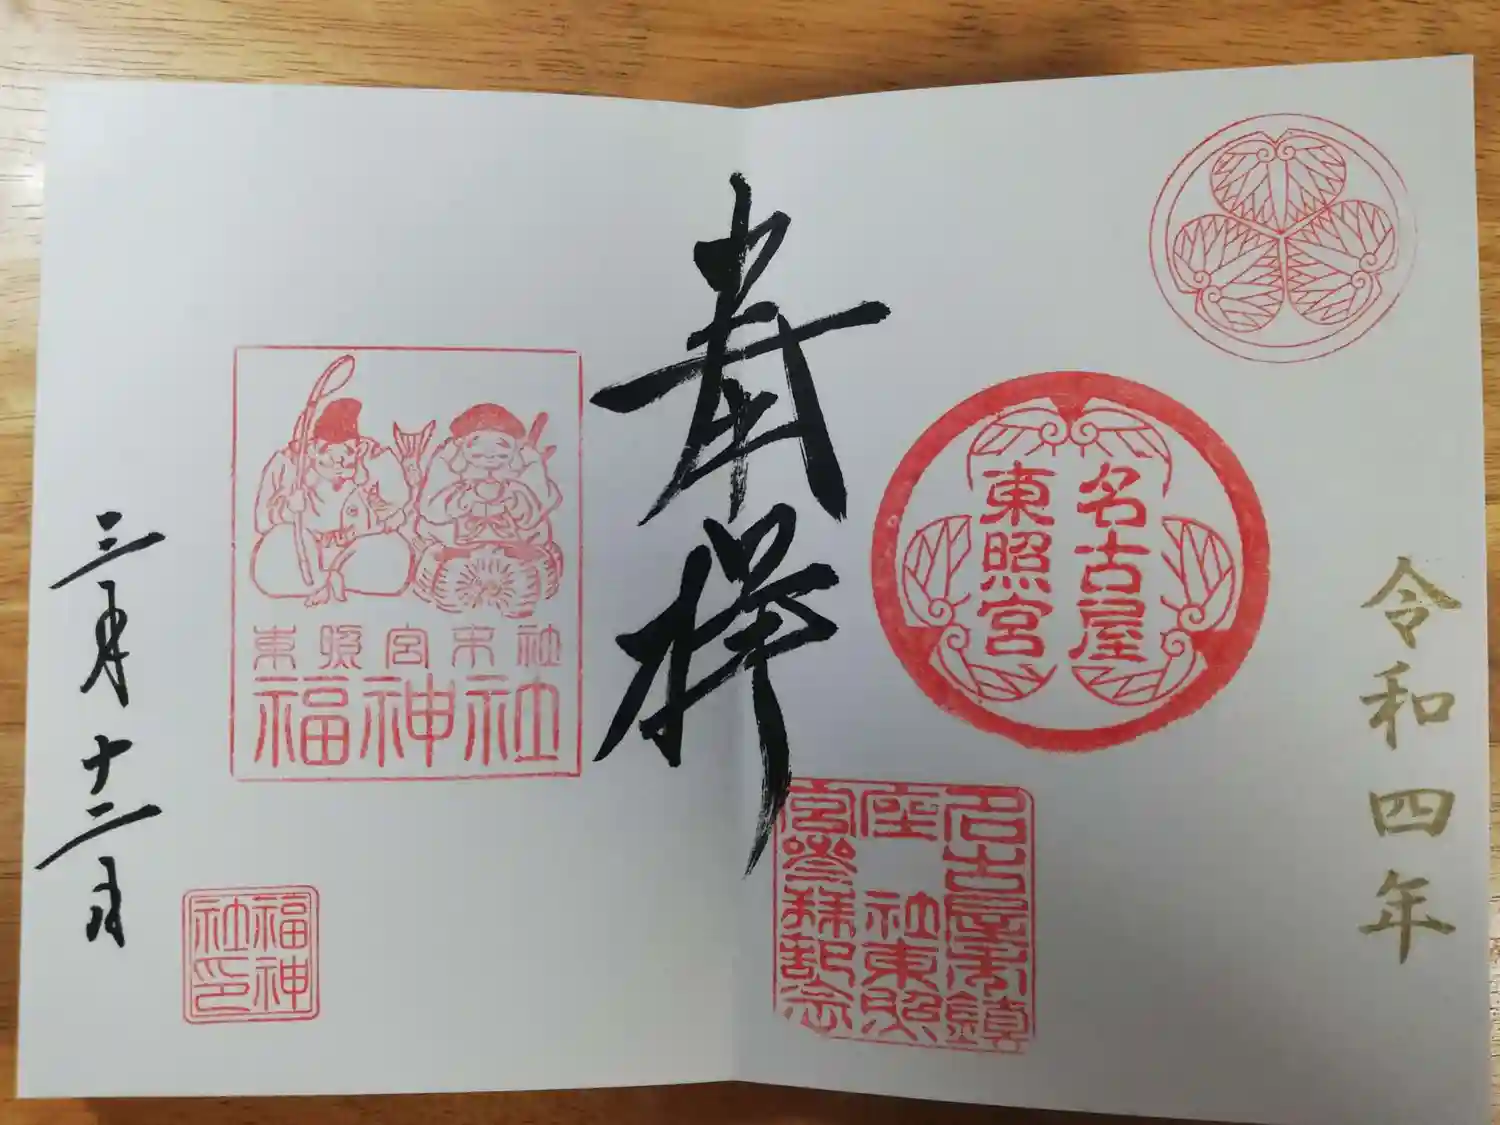 令和四年
名古屋
東照宮
名古屋市鎮
座　社東照
宮参拝記念
奉拝
東照宮末社
福神社
福神
社印
三月十二日